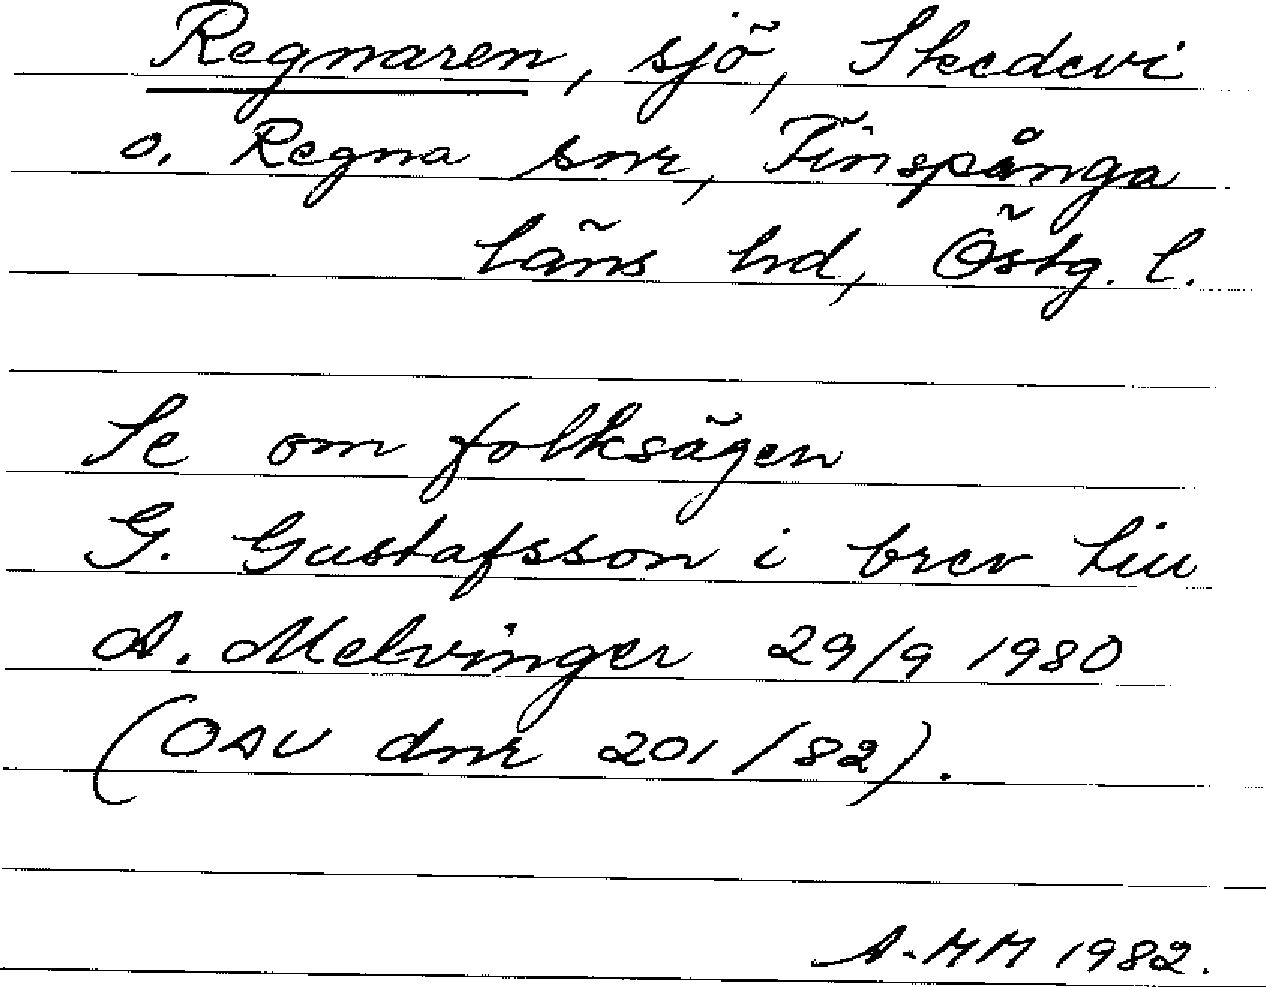 Regnaren, sjö, Skedevi
o. Regna snr, Finspånga
läns hd, Östg. l.
Se om folksägen
G. Gustafsson i brev till
A. Melvinger 29/9 1980
(OAU dnr 201/82).
A-MM 1982.